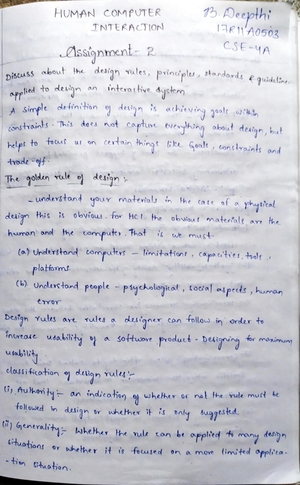 HUMAN COMPUTER
INTERACTION
B. Deepthi
17R11A0503
CSE-4A
Assignment - 2
Discuss about the design rules, principles, standards & guideline
applied to design an interactive system
A simple definition of design is achieving goals within
constraints. This does not capture everything about design, but
helps to focus us on certain things like Goals, constraints and
trade-off.
The golden rule of design:-
- understand your materials in the case of a physical
design this is obvious. for HCI the obvious materials are the
human and the computer. That is we must.
(a) Understand computers - limitations, capacities, tools,
platforms
(b) Understand people - psychological, social aspects, human
error
Design rules are rules a designer can follow in order to
increase usability of a software product - Designing for maximum
usability
classification of design rules:-
(i) Authority:- an indication of whether or not the rule must be
followed in design or whether it is only suggested.
(ii) Generality:- Whether the rule can be applied to many design
situations or whether it is focused on a more limited applica-
-tion situation.